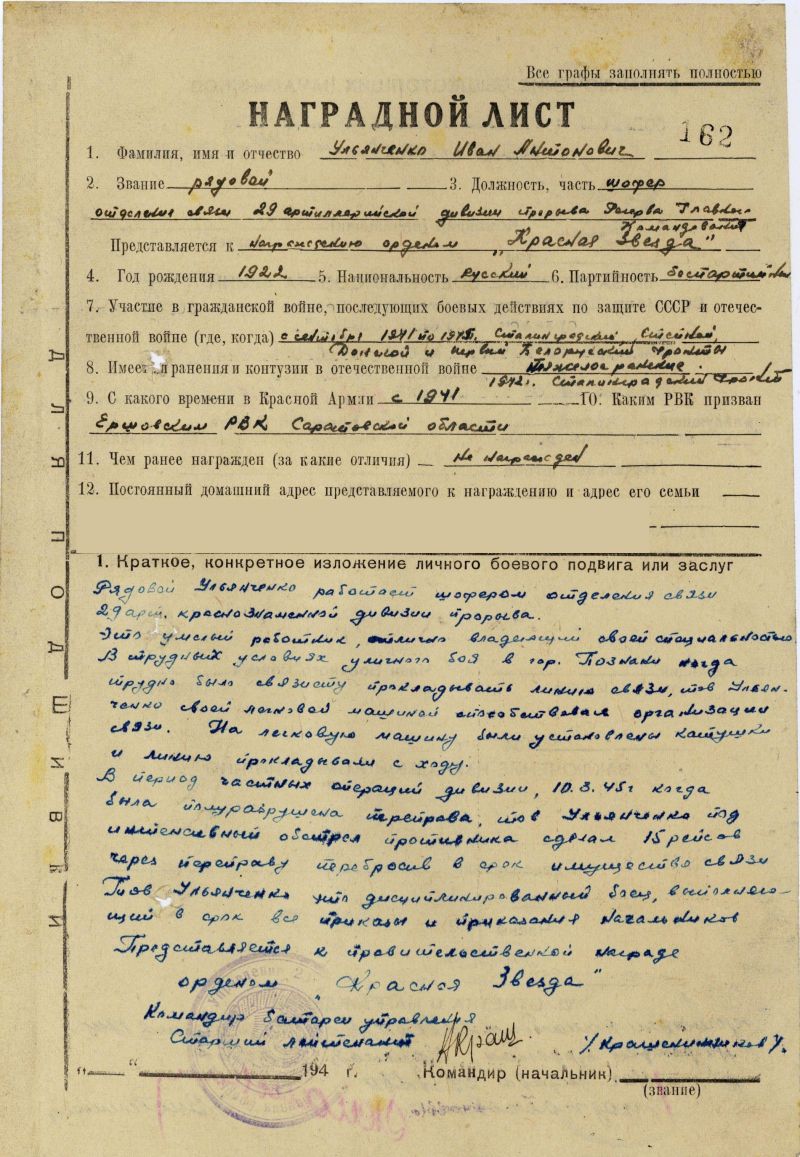 Все графы заполнять полностью
НАГРАДНОЙ ЛИСТ
162
1. Фамилия, имя и отчество Ульянченко Иван Антонович
2. Звание рядовой 3. Должность, часть шофер
отделения связи 29 артиллерийской дивизии прорыва Резерва Главного
Командования
Представляется к награждению орденом „Красная Звезда"
4. Год рождения 1922 5. Национальность Русский 6. Партийность беспартийный
7. Участие в гражданской войне, последующих боевых действиях по защите СССР и отечес-
твенной войне (где, когда) с 1941 по 1945. Сталинградский, Степной,
Донской и первый Белорусский фронты
8. Имеет ли ранения и контузии в отечественной войне тяжелое ранение
1942г. Сталинградский фронт
9. С какого времени в Красной Армии с 1941 10. Каким РВК призван
Ершовским РВК Саратовской области
11. Чем ранее награжден (за какие отличия) Не награжден
12. Постоянный домашний адрес представляемого к награждению и адрес его семьи
1. Краткое, конкретное изложение личного боевого подвига или заслуг
Рядовой Ульянченко работает шофером отделения связи
29 арт. краснознаменной дивизии прорыва.
Это умелый работник, отлично владеющий своей специальностью
В трудных условиях уличного боя в гор. Познани когда
трудно было связисту прокладывать линию связи, тов Ульян-
ченко своей легковой машиной способствовал организации
связи. На легковую машину были установлены катушки
и линию прокладывали с ходу.
В период частных операций дивизии, 10.3.45г когда
была полуразрушена переправа, тов Ульянченко под
интенсивный обстрел противника сделал 15 рейсов
через переправу перебросив в срок имущество связи
Тов Ульянченко это дисциплинированный боец, выполняю-
щий в срок все приказы и приказания начальников
Представляется к правительственной награде
орденом „Красная Звезда"
Командир батареи управления
Старший лейтенант /Крашенинников/.
„ " 194 г. Командир (начальник)
(звание)
ДЛЯ ПОДШИВКИ